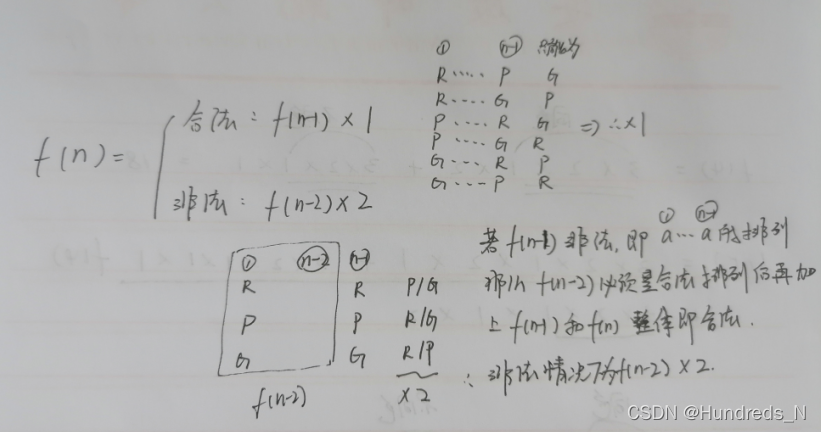 f(n) =
合法: f(n-1) × 1
非法: f(n-2) × 2
① n-1 只能为
R ····· P G
R ···· G P
P ···· R G
P ···· G R
G ··· R P
G ··· P R
⇒ ∴ ×1
① n-2 n-1
R R P/G
P P R/G
G G R/P
f(n-2) ×2
若 f(n-1) 非法, 即 a ··· a 排列
① n-1
那么 f(n-2) 必须是合法排列后再加
上 f(n-1) 和 f(n) 整体即合法.
∴ 非法情况下为 f(n-2) × 2.
CSDN @Hundreds_N